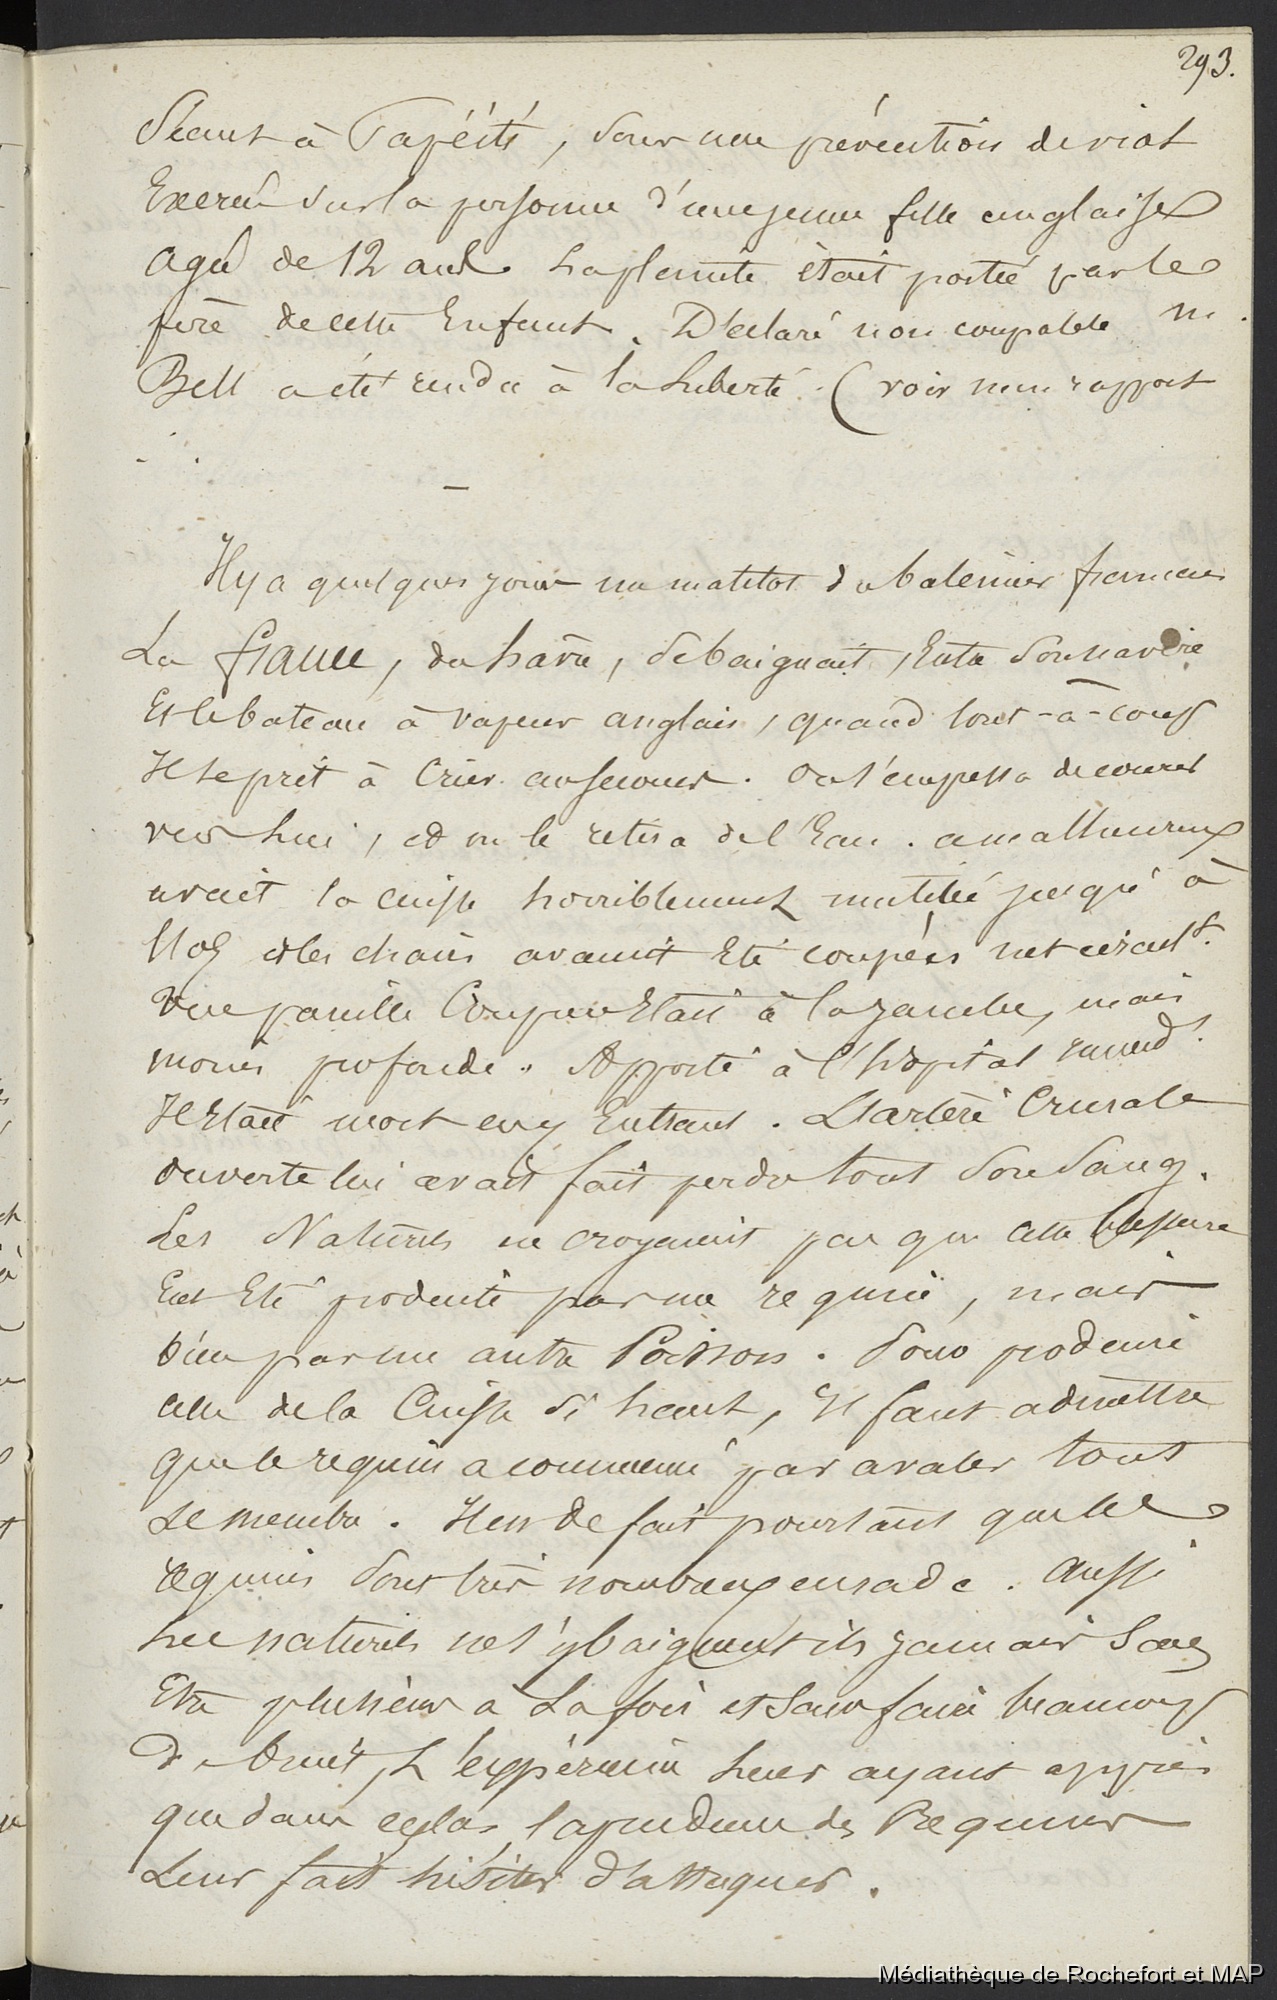 293.
Séant à Papéiti, sous une prévention de viol
Exercé sur la personne d'une jeune fille anglaise
agée de 12 ans. La plainte était portée par le
père de cette Enfant. Déclaré non coupable M.
Bell a été rendu à la Liberté. (voir mon rapport
Il y a quelques jours un matelot du baleinier français
La france, du havre, se baignait, Entre son navire
Et le bateau à vapeur anglais, quand tout-à-coup
Il se prit à Crier au secours. On s'empressa de courir
vers Lui, et on le retira de l'Eau. Ce malheureux
avait la cuisse horriblement mutilée jusqu'à
l'Os et les chairs avaient Eté coupées net circul.t
Une pareille Coupure Etait à la jambe, mais
moins profonde. Apporté à l'hôpital immed.t
Il Etait mort en y Entrant. L'artère Crurale
ouverte lui avait fait perdre tout Son Sang.
Les Naturels ne croyaient pas que cette blessure
Eut Eté produite par un requin, mais
bien par un autre Poisson. Pour produire
celle de la Cuisse si haut, Il faut admettre
que le requin a commencé par avaler tout
Le membre. Il est de fait pourtant que les
requins Sont très nombreux en rade. Aussi
Les naturels ne s'y baignent ils jamais Sans
Etre plusieurs à La fois et Sans faire beaucoup
de bruit, L'expérience Leur ayant appris
que dans ce cas, la prudence des Requins
Leur fait hésiter d'attaquer.
Médiathèque de Rochefort et MAP